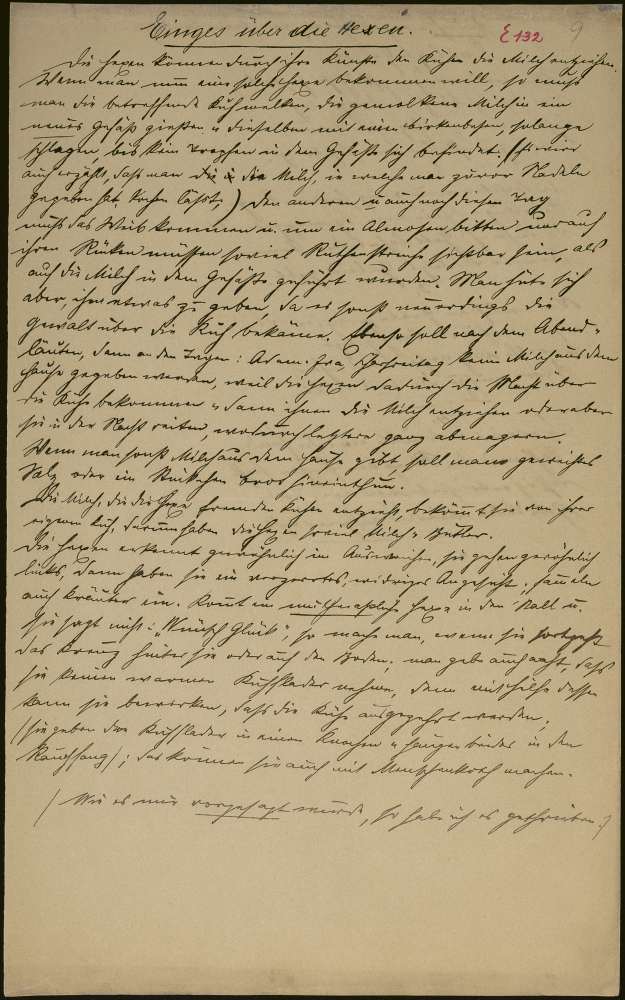 Einges über die Hexen.
E 132 9
Die Hexen können durch ihre Künste den Kühen die Milch entziehen.
Wenn man nun eine solche Hexe bekommen will, so muß
man die betreffende Kuh melken, die gemolkene Milch in ein
neues Gefäß gießen u dieselben mit einem birkenbesen, solange
schlagen, bis kein Tropfen in dem Gefäße sich befindet. (
auch erzählt, daß man die Milch, in welche man zuvor Nadeln
gegeben hat, kochen läßt,) den anderen u auch noch diesen Tag
muß das Weib kommen u. um ein Almosen bitten und auf
ihren Rücken müssen soviel Ruthenstreiche sichtbar sein, als
auf die Milch in dem Gefäße geführt wurden. Man hüte sich
aber, ihr etwas zu geben, da es sonst neuerdings die
Gewalt über die Kuh bekäme. Ebenso soll nach dem Abend-
läuten, dann an den Tagen: Adam-Eva, Charfreitag keine Milch aus dem
Hause gegeben werden, weil die Hexen dadurch die Macht über
die Kuh bekommen u dann ihnen die Milch entziehen oder aber
sie in der Nacht reiten, wodurch letztere ganz abmagern.
Wenn man sonst Milch aus dem Hause gibt, soll man geweihtes
Salz oder ein Stückchen brod hineinthun.
Die Milch, die die Hexe fremden Kühen entzieht, bekommt sie von ihrer
eigenen Kuh, darum haben die Hexen soviel Milch u Butter.
Die Hexen erkennt gewöhnlich im Ausweichen, sie gehen gewöhnlich
links, dann haben sie ein widriges Angesicht, sammeln
auch Kräuter ein. Komt eine muthmaßliche Hexe in den Stall u.
sie sagt nicht: "Wünsch Glück", so mache man, wenn sie fortgeht
das Kreuz hinter sie oder auf den Boden, man gebe auch acht, daß
sie keinen warmen Kuhflader nehme, denn mit Hilfe dessen
kann sie bewerken, daß die Kühe ausgezehrt werden,
(sie geben den Kuhflader in einen Knochen u hängen beides in den
Rauchfang); das können sie auch mit Menschenkoth machen.
(Wie es mir vorgesagt wurde, so habe ich es geschrieben.)